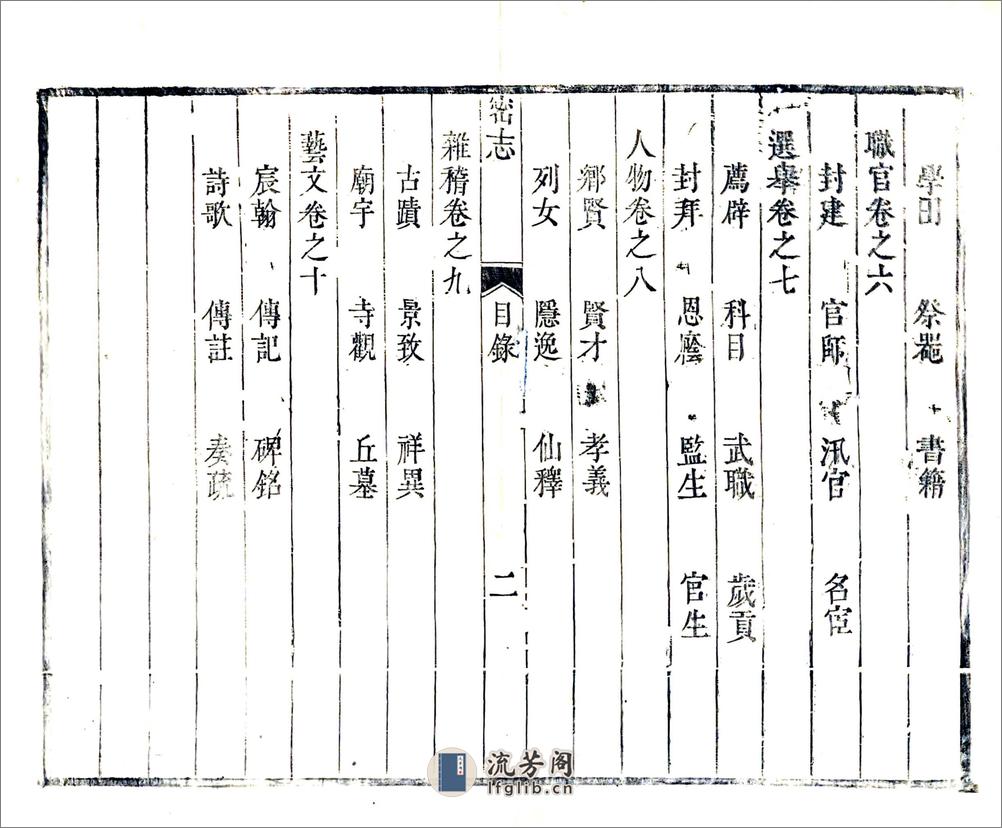 學田 祭器 書籍
職官卷之六
封建 官師 汛官 名宦
選舉卷之七
薦辟 科目 武職 歲貢
封拜 恩廕 監生 官生
人物卷之八
鄉賢 賢才 孝義
列女 隱逸 仙釋
密志 目錄 二
雜稽卷之九
古蹟 景致 祥異
廟宇 寺觀 丘墓
藝文卷之十
宸翰 傳記 碑銘
詩歌 傳註 奏疏
流芳阁
lfglib.cn